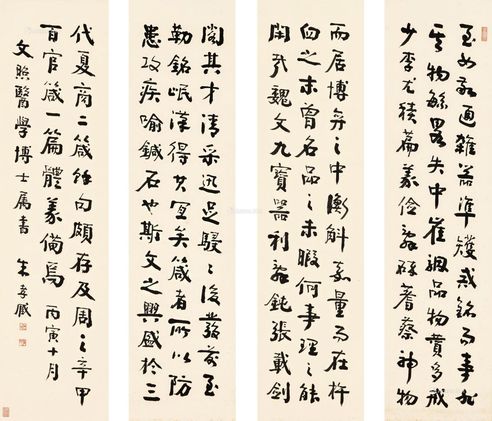 至如敬通雜器準矱戒銘而事非
其物繇畧失中崔駰品物贊多戒
少李尤積篇義儉辭碎蓍蔡神物
而居博弈之中衡斛嘉量而在杵
臼之末曾名品之未暇何事理之能
閑哉魏文九寶器利辭鈍張載劍
閣其才清采迅足駸駸後發前至
勒銘岷漢得其宜矣箴者所以防
患攻疾喻鍼石也斯文之興盛於三
代夏商二箴餘句頗存及周之辛甲
百官箴一篇體義備焉 丙寅十月
文照醫學博士屬書 朱孝臧